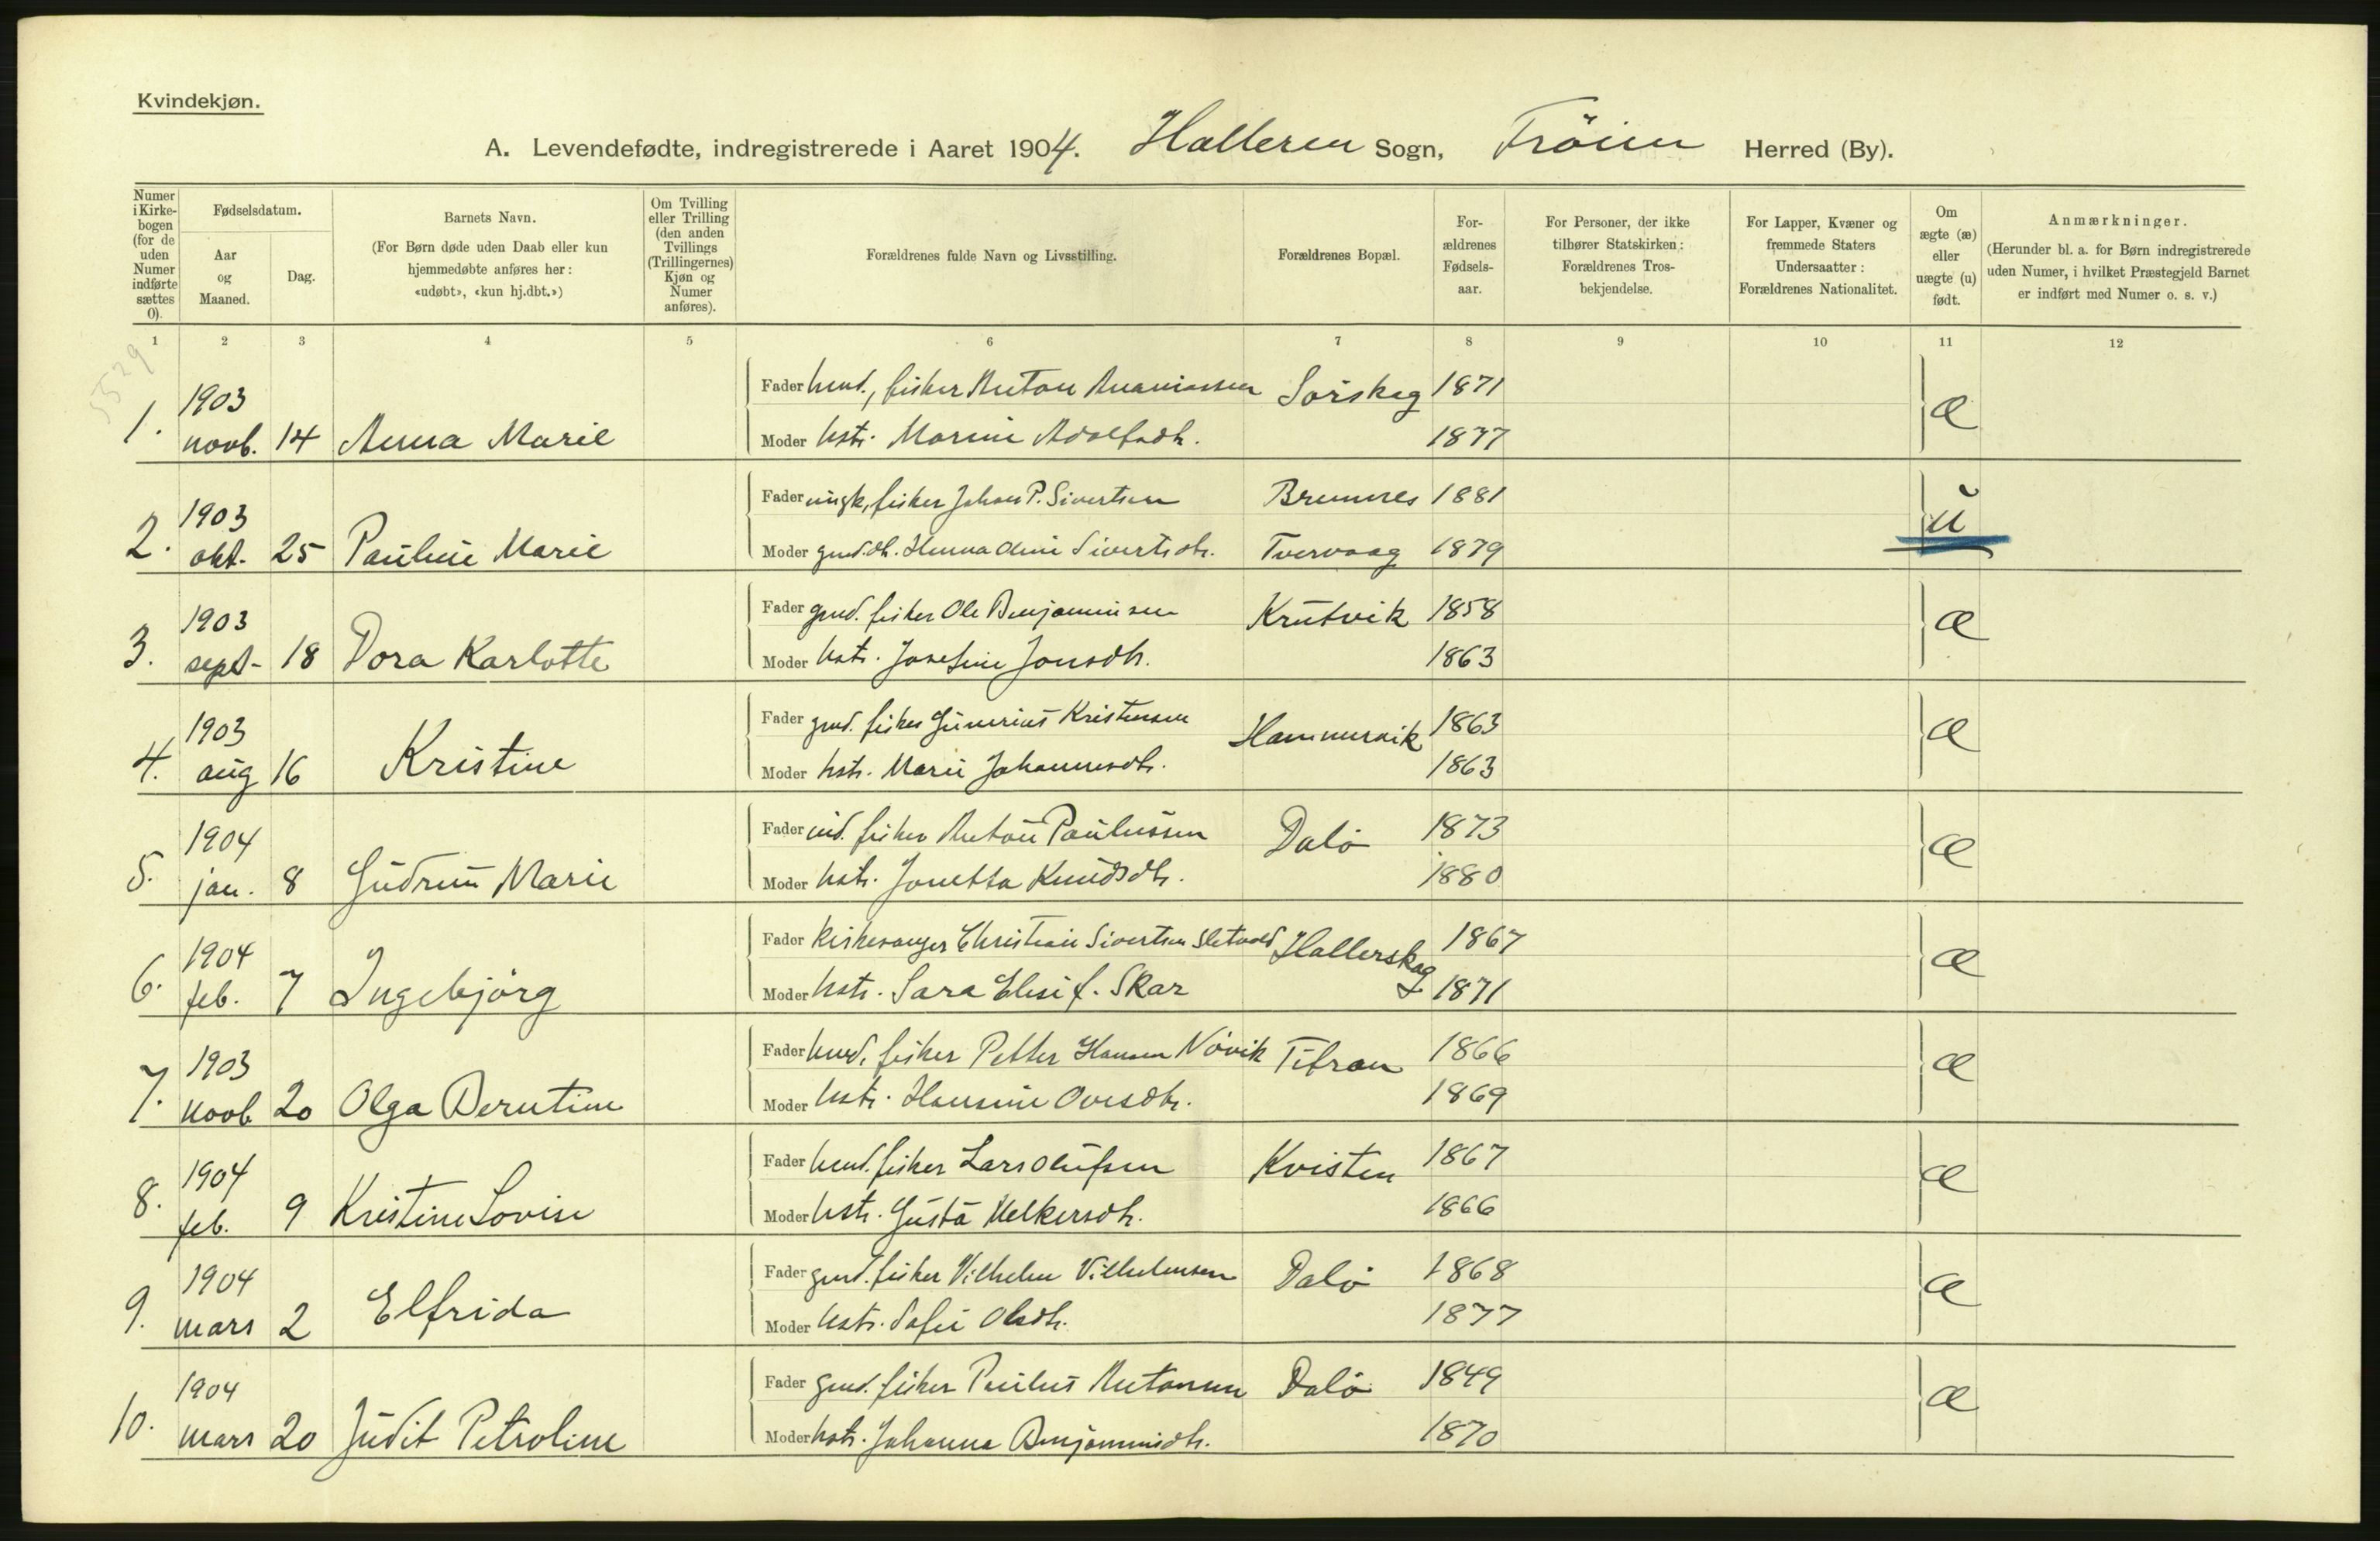 Kvindekjøn.
A. Levendefødte, indregistrerede i Aaret 1904. Halleren Sogn, Fröien Herred (By).
Numer i Kirke-bogen (for de uden Numer indførte sættes 0).
Fødselsdatum.
Aar og Maaned.
Dag.
Barnets Navn.
(For Børn døde uden Daab eller kun hjemmedøbte anføres her: «udøbt», «kun hj.dbt.»)
Om Tvilling eller Trilling (den anden Tvillings (Trillingernes) Kjøn og Numer anføres).
Forældrenes fulde Navn og Livsstilling.
Forældrenes Bopæl.
For-ældrenes Fødsels-aar.
For Personer, der ikke tilhører Statskirken: Forældrenes Tros-bekjendelse.
For Lapper, Kvæner og fremmede Staters Undersaatter: Forældrenes Nationalitet.
Om ægte (æ) eller uægte (u) født.
Anmærkninger.
(Herunder bl. a. for Børn indregistrerede uden Numer, i hvilket Præstegjeld Barnet er indført med Numer o. s. v.)
1 2 3 4 5 6 7 8 9 10 11 12
5529
1903 Fader fisker Anton Ananiassen Sörskag 1871 æ
1. novb. 14 Anna Marie Moder hstr. Marine Adolfsdtr. 1877
1903 Fader ungk, fisker Johan P. Sivertsen Bremnes 1881 u
2. okt. 25 Pauline Marie Moder Sivertsdtr. Tvervaag 1879
1903 Fader gmd. fisker Ole Benjaminsen Krutvik 1858 æ
3. sept- 18 Dora Karlotte Moder hstr. Josefine Jonsdtr. 1863
1903 Fader gmd. fisker Gunerius Kristensen Hammervik 1863 æ
4. aug 16 Kristine Moder hstr. Marie Johannesdtr. 1863
1904 Fader ind. fisker Anton Paulussen Dalö 1873 æ
5. jan. 8 Gudrun Marie Moder hstr. Jonetta Knudsdtr. 1880
1904 Fader kirkesanger Christian Sivertsen Sletvold Hallerskag 1867 æ
6. feb. 7 Ingebjörg Moder hstr. Sara Elise f. Skar 1871
1903 Fader fisker Petter Hansen Növik Titran 1866 æ
7. novb 20 Olga Berntine Moder hstr. Hansine Ovesdtr. 1869
1904 Fader fisker Lars Olufsen Kvisten 1867 æ
8. feb. 9 Kristine Lovise Moder hstr. Gusta Melkersdtr. 1866
1904 Fader gmd. fisker Vilhelm Vilhelmsen Dalö 1868 æ
9. mars 2 Elfrida Moder hstr. Sofie Olsdtr. 1877
1904 Fader gmd. fisker Paulus Antonsen Dalö 1849 æ
10. mars 20 Judit Petroline Moder hstr. Johanna Benjaminsdtr. 1870